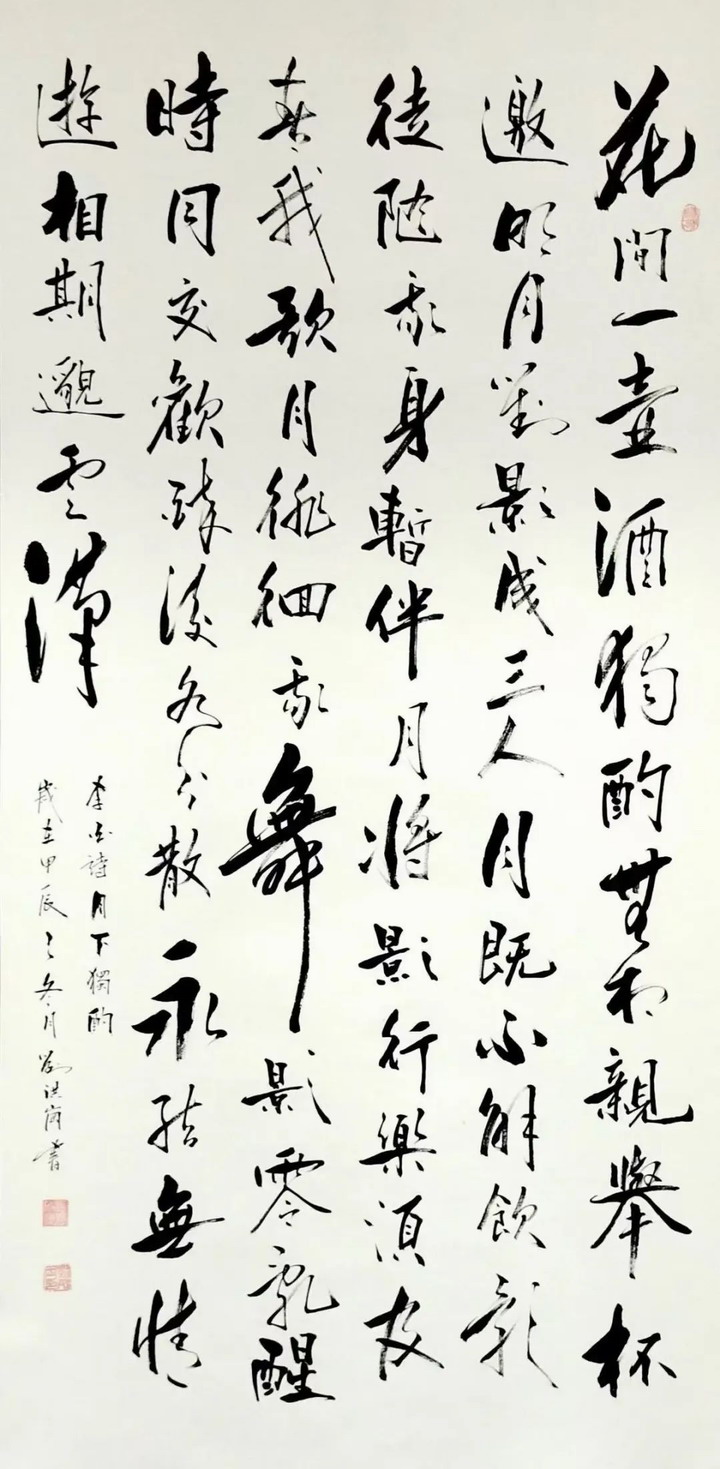 花間一壺酒獨酌無相親舉杯
邀明月對影成三人月既不解飲影
徒随我身暫伴月將影行樂須及
春我歌月徘徊我舞影零亂醒
時同交歡醉後各分散永結無情
遊相期邈雲漢
李白詩月下獨酌
歲在甲辰之冬月劉洪書